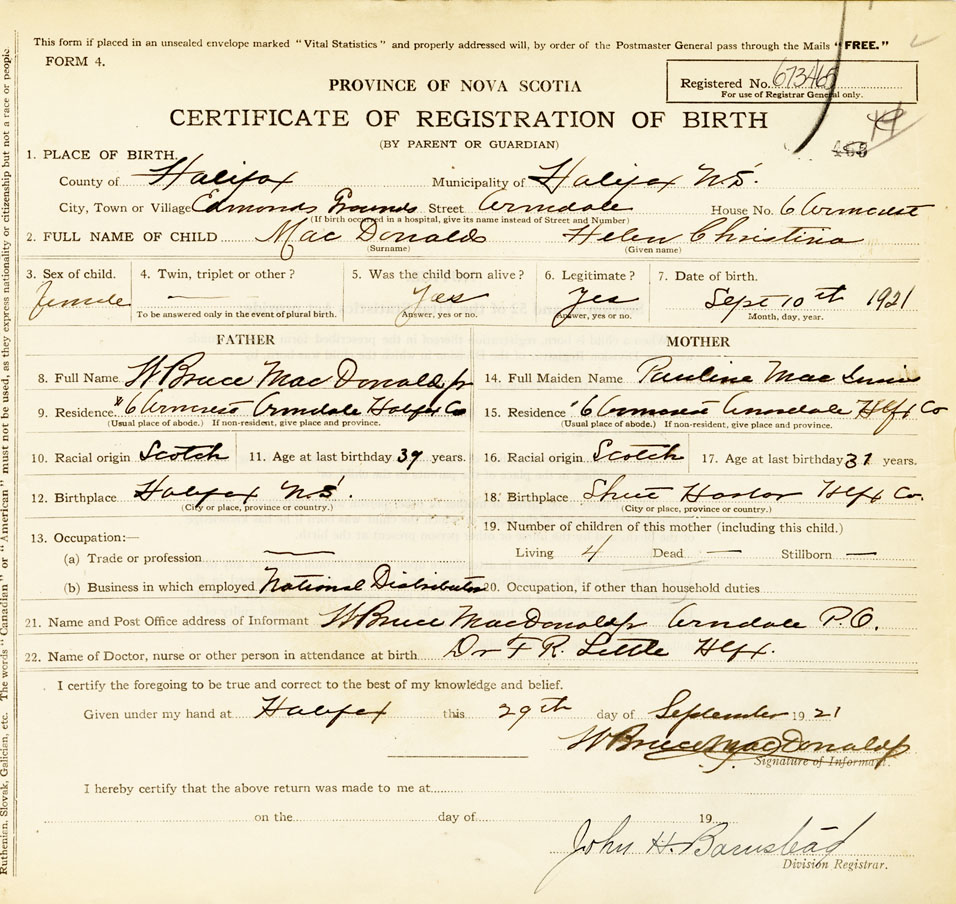 This form if placed in an unsealed envelope marked "Vital Statistics" and properly addressed will, by order of the Postmaster General pass through the Mails "FREE."
FORM 4.
Registered No. 673465
For use of Registrar General only.
PROVINCE OF NOVA SCOTIA
CERTIFICATE OF REGISTRATION OF BIRTH
(BY PARENT OR GUARDIAN)
1. PLACE OF BIRTH.
County of Halifax Municipality of Halifax N.S.
City, Town or Village Edmonds Grounds Street Armdale House No. 6 Armcrest
(If birth occurred in a hospital, give its name instead of Street and Number)
2. FULL NAME OF CHILD Mac Donald Helen Christina
(Surname) (Given name)
3. Sex of child. 4. Twin, triplet or other? 5. Was the child born alive? 6. Legitimate? 7. Date of birth.
female — Yes yes Sept 10th 1921
To be answered only in the event of plural birth. Answer, yes or no. Answer, yes or no. Month, day, year.
FATHER MOTHER
8. Full Name W Bruce Mac Donald Jr 14. Full Maiden Name Pauline Mac Innis
9. Residence "6 Armcrest Armdale Halifax Co 15. Residence "6 Armcrest Armdale Hlfx Co
(Usual place of abode.) If non-resident, give place and province. (Usual place of abode.) If non-resident, give place and province.
10. Racial origin Scotch 11. Age at last birthday 39 years. 16. Racial origin Scotch 17. Age at last birthday 37 years.
12. Birthplace Halifax N.S. 18. Birthplace Sheet Harbor Hlfx Co.
(City or place, province or country.) (City or place, province or country.)
13. Occupation:— 19. Number of children of this mother (including this child.)
(a) Trade or profession — Living 4 Dead — Stillborn —
(b) Business in which employed National Distributor 20. Occupation, if other than household duties
21. Name and Post Office address of Informant W Bruce MacDonald Jr Armdale P.O.
22. Name of Doctor, nurse or other person in attendance at birth Dr F R. Little Hlfx.
I certify the foregoing to be true and correct to the best of my knowledge and belief.
Given under my hand at Halifax this 29th day of September 1921
W Bruce MacDonald Jr
Signature of Informant.
I hereby certify that the above return was made to me at
on the day of 19
John H. Barnstead
Division Registrar.
Ruthenian, Slovak, Galician, etc. The words "Canadian" or "American" must not be used, as they express nationality or citizenship but not a race or people.